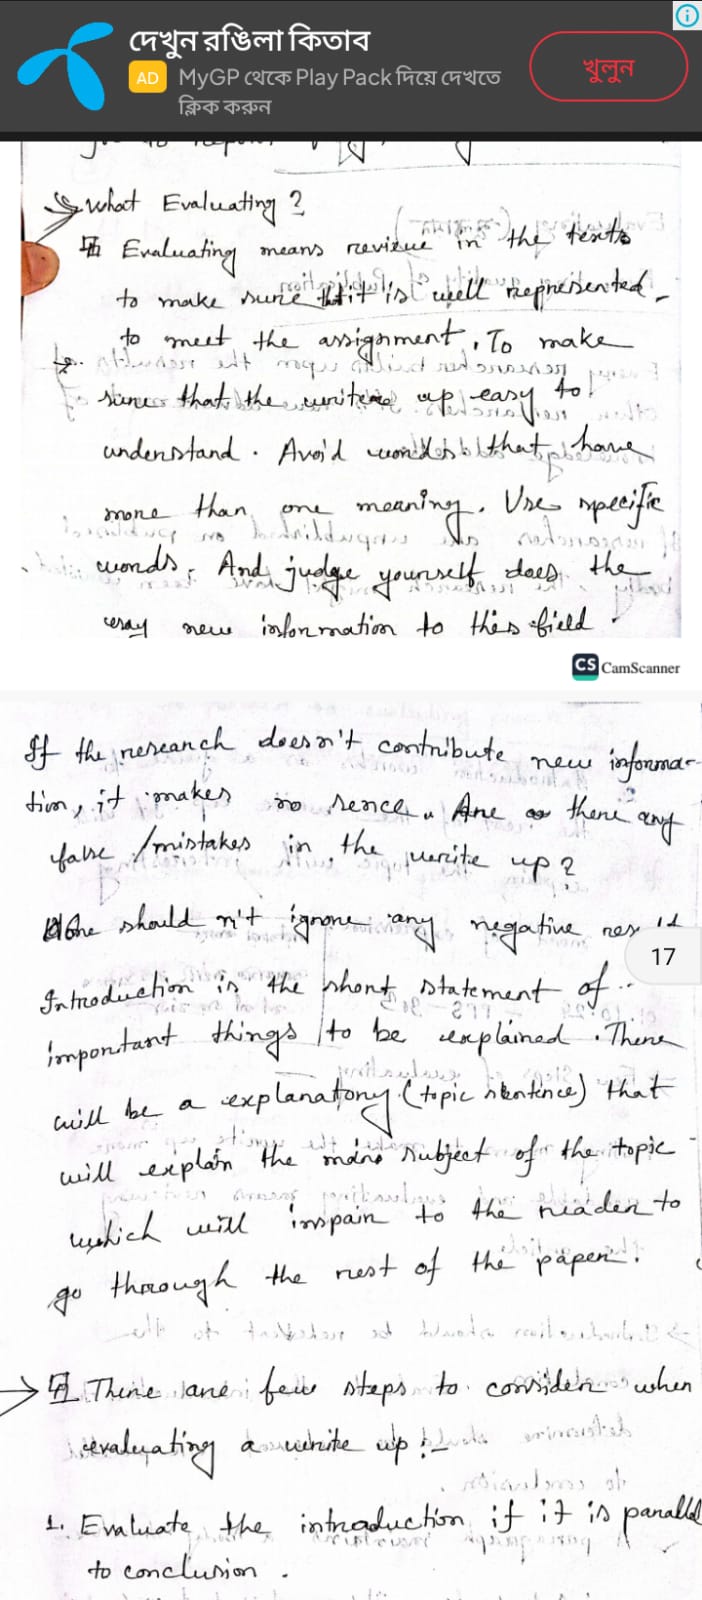 দেখুন রঙিলা কিতাব
AD MyGP থেকে Play Pack দিয়ে দেখতে
ক্লিক করুন
খুলুন
What Evaluating ?
Evaluating means reviewe in the texts
to make sure it is well represented,
to meet the assignment. To make
sure that the write up easy to
understand. Avoid words that have
more than one meaning. Use specific
words. And judge yourself does the
new information to this field.
CS CamScanner
If the research doesn't contribute new informa-
tion, it makes no sence. Are there any
false /mistakes in the write up?
One should n't ignore any negative
17
Introduction is the short statement of
important things to be explained. There
will be a explanatory (topic sentence) that
will explain the main subject of the topic
which will inspair to the reader to
go through the rest of the paper.
There are few steps to consider when
evaluating a write up :-
1. Evaluate the introduction if it is parallel
to conclusion.